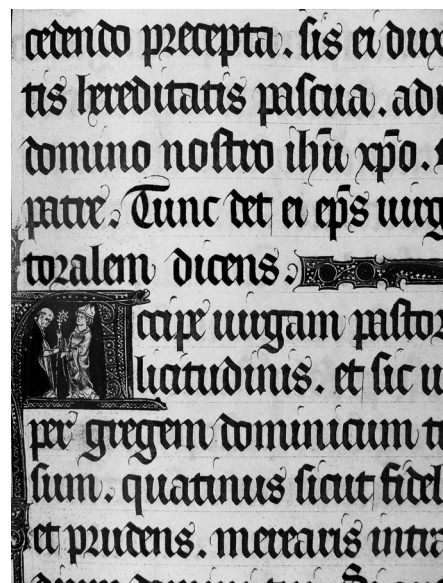 cedendo precepta. sis ei dux
tis hereditatis pascua. adi
domino nostro ihū xp̄o.
patre. Tunc det ei ep̄s uirg
toralem dicens.
Accipe uirgam pastor
licitudinis. et sic u
per gregem dominicum
sum. quatinus sicut fidel
et prudens. merearis intra